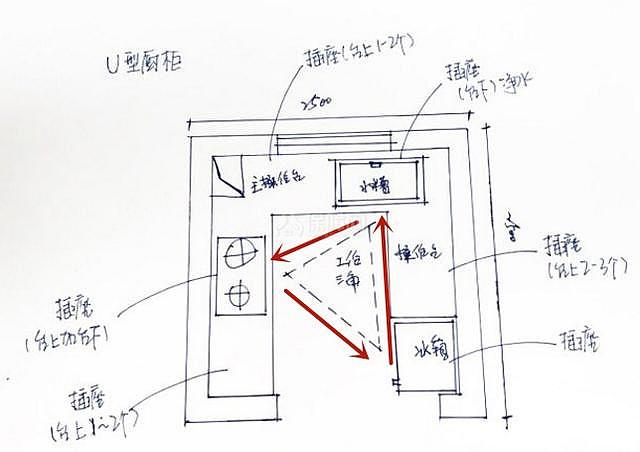 U型厨柜
插座(台上1-2个)
插座
(台下)净水
2500
主操作台
水槽
操作台
工作
三角
插座
(台上2-3个)
插座
(台上加台下)
冰箱
插座
插座
(台上1~2个)